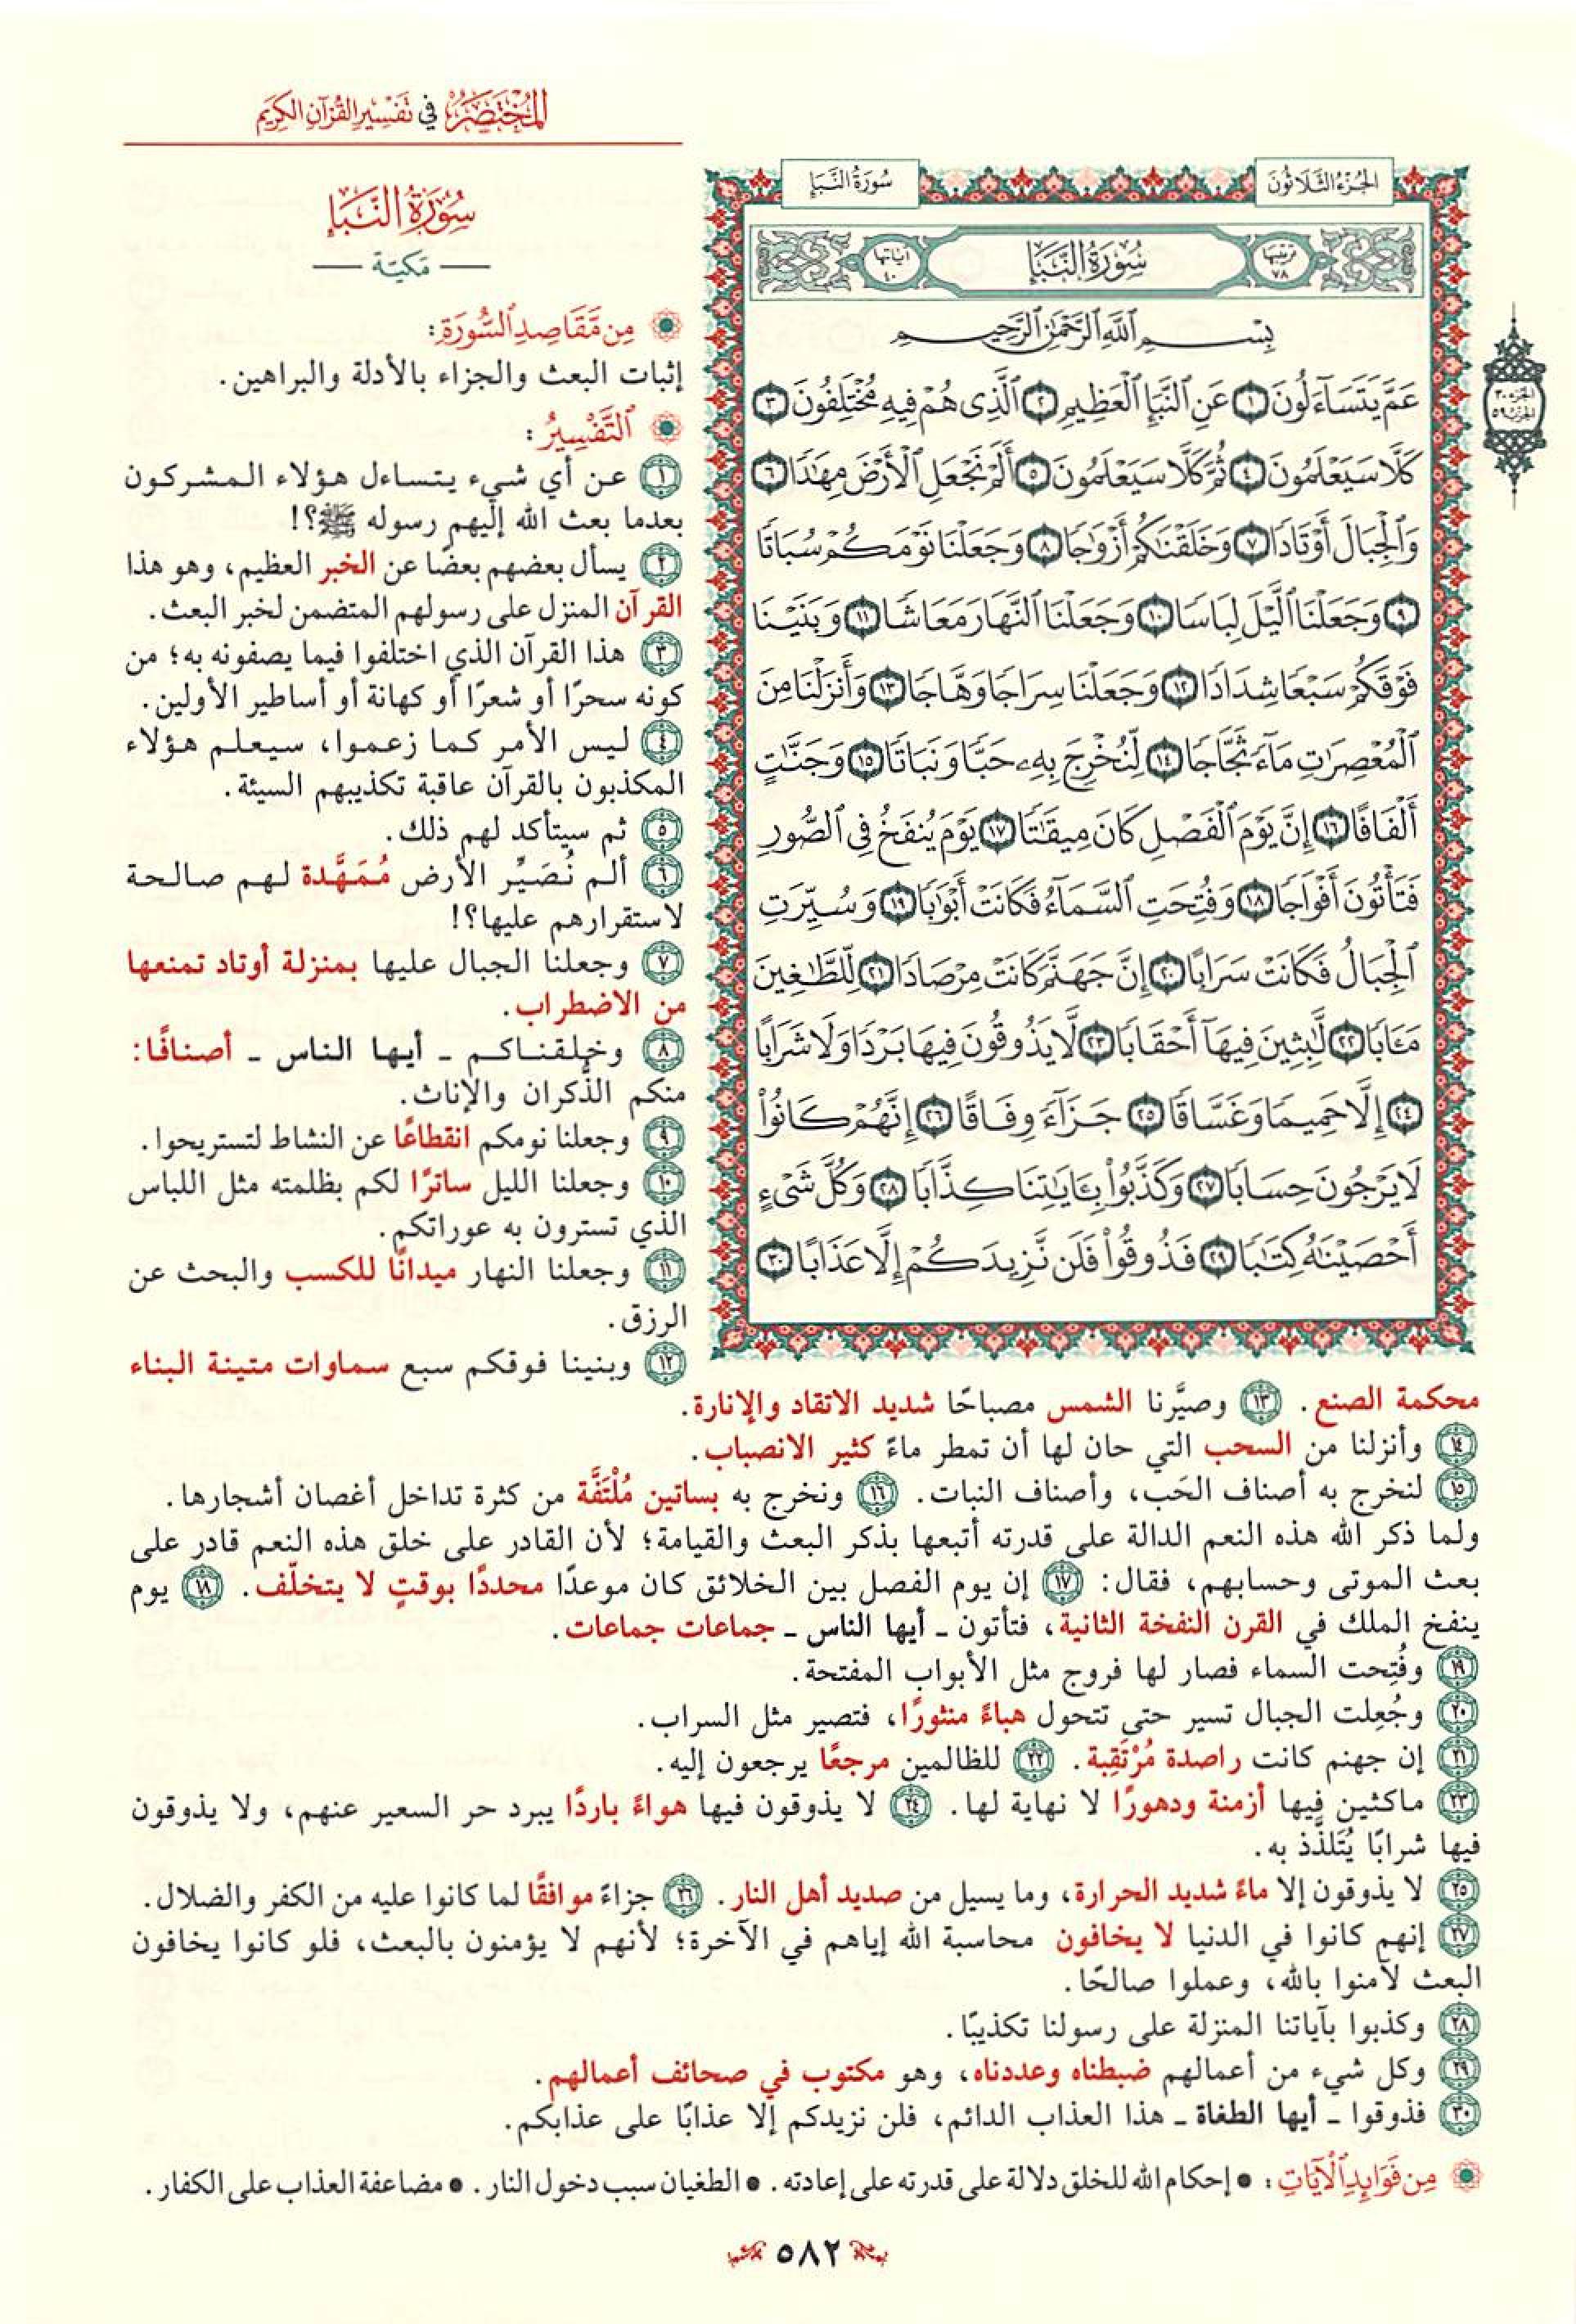 المختصر في تفسير القرآن الكريم
الجزء الثلاثون
سورة النبإ
ترتيبها ٧٨
سُورَةُ النَّبَإِ
آياتها ٤٠
الجزء ٣٠
الحزب ٥٩
بِسْمِ ٱللَّهِ ٱلرَّحْمَٰنِ ٱلرَّحِيمِ
عَمَّ يَتَسَآءَلُونَ ١ عَنِ ٱلنَّبَإِ ٱلْعَظِيمِ ٢ ٱلَّذِى هُمْ فِيهِ مُخْتَلِفُونَ ٣
كَلَّا سَيَعْلَمُونَ ٤ ثُمَّ كَلَّا سَيَعْلَمُونَ ٥ أَلَمْ نَجْعَلِ ٱلْأَرْضَ مِهَٰدًا ٦
وَٱلْجِبَالَ أَوْتَادًا ٧ وَخَلَقْنَٰكُمْ أَزْوَٰجًا ٨ وَجَعَلْنَا نَوْمَكُمْ سُبَاتًا
٩ وَجَعَلْنَا ٱلَّيْلَ لِبَاسًا ١٠ وَجَعَلْنَا ٱلنَّهَارَ مَعَاشًا ١١ وَبَنَيْنَا
فَوْقَكُمْ سَبْعًا شِدَادًا ١٢ وَجَعَلْنَا سِرَاجًا وَهَّاجًا ١٣ وَأَنزَلْنَا مِنَ
ٱلْمُعْصِرَٰتِ مَآءً ثَجَّاجًا ١٤ لِّنُخْرِجَ بِهِۦ حَبًّا وَنَبَاتًا ١٥ وَجَنَّٰتٍ
أَلْفَافًا ١٦ إِنَّ يَوْمَ ٱلْفَصْلِ كَانَ مِيقَٰتًا ١٧ يَوْمَ يُنفَخُ فِى ٱلصُّورِ
فَتَأْتُونَ أَفْوَاجًا ١٨ وَفُتِحَتِ ٱلسَّمَآءُ فَكَانَتْ أَبْوَٰبًا ١٩ وَسُيِّرَتِ
ٱلْجِبَالُ فَكَانَتْ سَرَابًا ٢٠ إِنَّ جَهَنَّمَ كَانَتْ مِرْصَادًا ٢١ لِّلطَّٰغِينَ
مَـَٔابًا ٢٢ لَّٰبِثِينَ فِيهَآ أَحْقَابًا ٢٣ لَّا يَذُوقُونَ فِيهَا بَرْدًا وَلَا شَرَابًا
٢٤ إِلَّا حَمِيمًا وَغَسَّاقًا ٢٥ جَزَآءً وِفَاقًا ٢٦ إِنَّهُمْ كَانُوا۟
لَا يَرْجُونَ حِسَابًا ٢٧ وَكَذَّبُوا۟ بِـَٔايَٰتِنَا كِذَّابًا ٢٨ وَكُلَّ شَىْءٍ
أَحْصَيْنَٰهُ كِتَٰبًا ٢٩ فَذُوقُوا۟ فَلَن نَّزِيدَكُمْ إِلَّا عَذَابًا ٣٠
سُورَةُ النَّبَإِ
مَكيّة
مِن مَّقَاصِدِ ٱلسُّورَةِ:
إثبات البعث والجزاء بالأدلة والبراهين.
ٱلتَّفْسِيرُ:
١ عن أي شيء يتساءل هؤلاء المشركون
بعدما بعث الله إليهم رسوله ﷺ؟!
٢ يسأل بعضهم بعضًا عن الخبر العظيم، وهو هذا
القرآن المنزل على رسولهم المتضمن لخبر البعث.
٣ هذا القرآن الذي اختلفوا فيما يصفونه به؛ من
كونه سحرًا أو شعرًا أو كهانة أو أساطير الأولين.
٤ ليس الأمر كما زعموا، سيعلم هؤلاء
المكذبون بالقرآن عاقبة تكذيبهم السيئة.
٥ ثم سيتأكد لهم ذلك.
٦ ألم نُصَيِّر الأرض مُمَهَّدة لهم صالحة
لاستقرارهم عليها؟!
٧ وجعلنا الجبال عليها بمنزلة أوتاد تمنعها
من الاضطراب.
٨ وخلقناكم ـ أيها الناس ـ أصنافًا:
منكم الذُّكران والإناث.
٩ وجعلنا نومكم انقطاعًا عن النشاط لتستريحوا.
١٠ وجعلنا الليل ساترًا لكم بظلمته مثل اللباس
الذي تسترون به عوراتكم.
١١ وجعلنا النهار ميدانًا للكسب والبحث عن
الرزق.
١٢ وبنينا فوقكم سبع سماوات متينة البناء
محكمة الصنع. ١٣ وصيَّرنا الشمس مصباحًا شديد الاتقاد والإنارة.
١٤ وأنزلنا من السحب التي حان لها أن تمطر ماءً كثير الانصباب.
١٥ لنخرج به أصناف الحَب، وأصناف النبات. ١٦ ونخرج به بساتين مُلْتَفَّة من كثرة تداخل أغصان أشجارها.
ولما ذكر الله هذه النعم الدالة على قدرته أتبعها بذكر البعث والقيامة؛ لأن القادر على خلق هذه النعم قادر على
بعث الموتى وحسابهم، فقال: ١٧ إن يوم الفصل بين الخلائق كان موعدًا محددًا بوقتٍ لا يتخلَّف. ١٨ يوم
ينفخ الملك في القرن النفخة الثانية، فتأتون ـ أيها الناس ـ جماعات جماعات.
١٩ وفُتِحت السماء فصار لها فروج مثل الأبواب المفتحة.
٢٠ وجُعِلت الجبال تسير حتى تتحول هباءً منثورًا، فتصير مثل السراب.
٢١ إن جهنم كانت راصدة مُرْتَقِبة. ٢٢ للظالمين مرجعًا يرجعون إليه.
٢٣ ماكثين فيها أزمنة ودهورًا لا نهاية لها. ٢٤ لا يذوقون فيها هواءً باردًا يبرد حر السعير عنهم، ولا يذوقون
فيها شرابًا يُتَلذَّذ به.
٢٥ لا يذوقون إلا ماءً شديد الحرارة، وما يسيل من صديد أهل النار. ٢٦ جزاءً موافقًا لما كانوا عليه من الكفر والضلال.
٢٧ إنهم كانوا في الدنيا لا يخافون محاسبة الله إياهم في الآخرة؛ لأنهم لا يؤمنون بالبعث، فلو كانوا يخافون
البعث لآمنوا بالله، وعملوا صالحًا.
٢٨ وكذبوا بآياتنا المنزلة على رسولنا تكذيبًا.
٢٩ وكل شيء من أعمالهم ضبطناه وعددناه، وهو مكتوب في صحائف أعمالهم.
٣٠ فذوقوا ـ أيها الطغاة ـ هذا العذاب الدائم، فلن نزيدكم إلا عذابًا على عذابكم.
مِن فَوَابِدِ ٱلْآيَاتِ: • إحكام الله للخلق دلالة على قدرته على إعادته. • الطغيان سبب دخول النار. • مضاعفة العذاب على الكفار.
٥٨٢